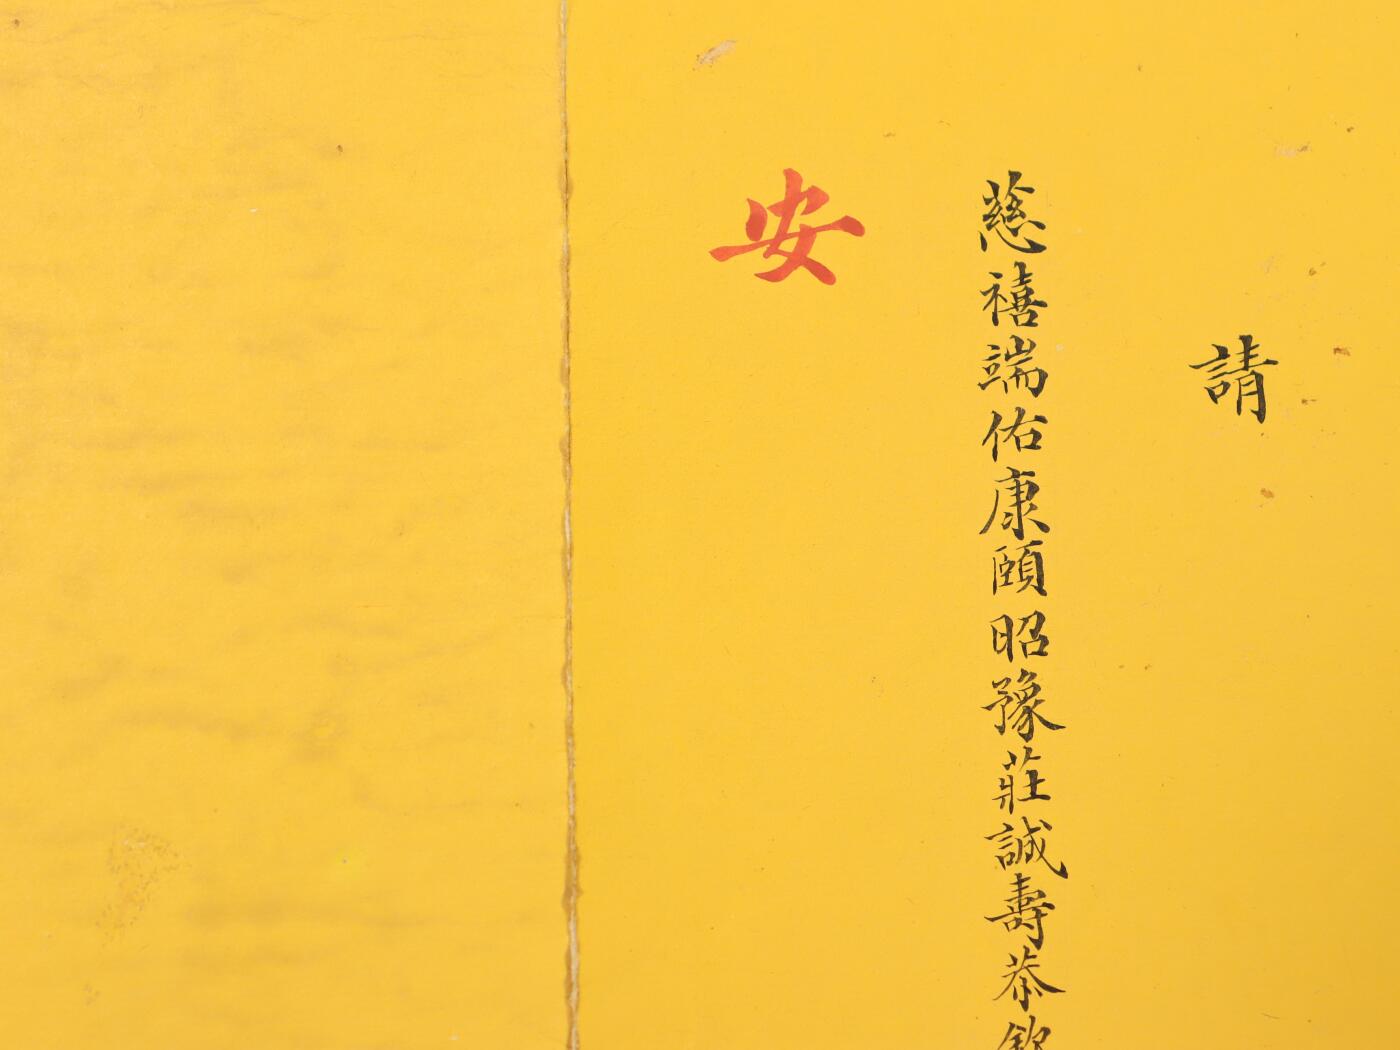 請
慈禧端佑康頤昭豫莊誠壽恭欽
安